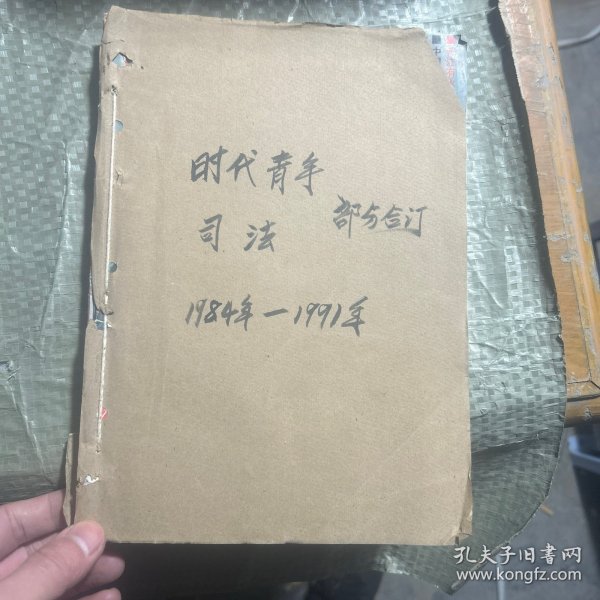 时代青年
司法
部分合订
1984年—1991年
中
孔夫子旧书网
www.kongfz.com